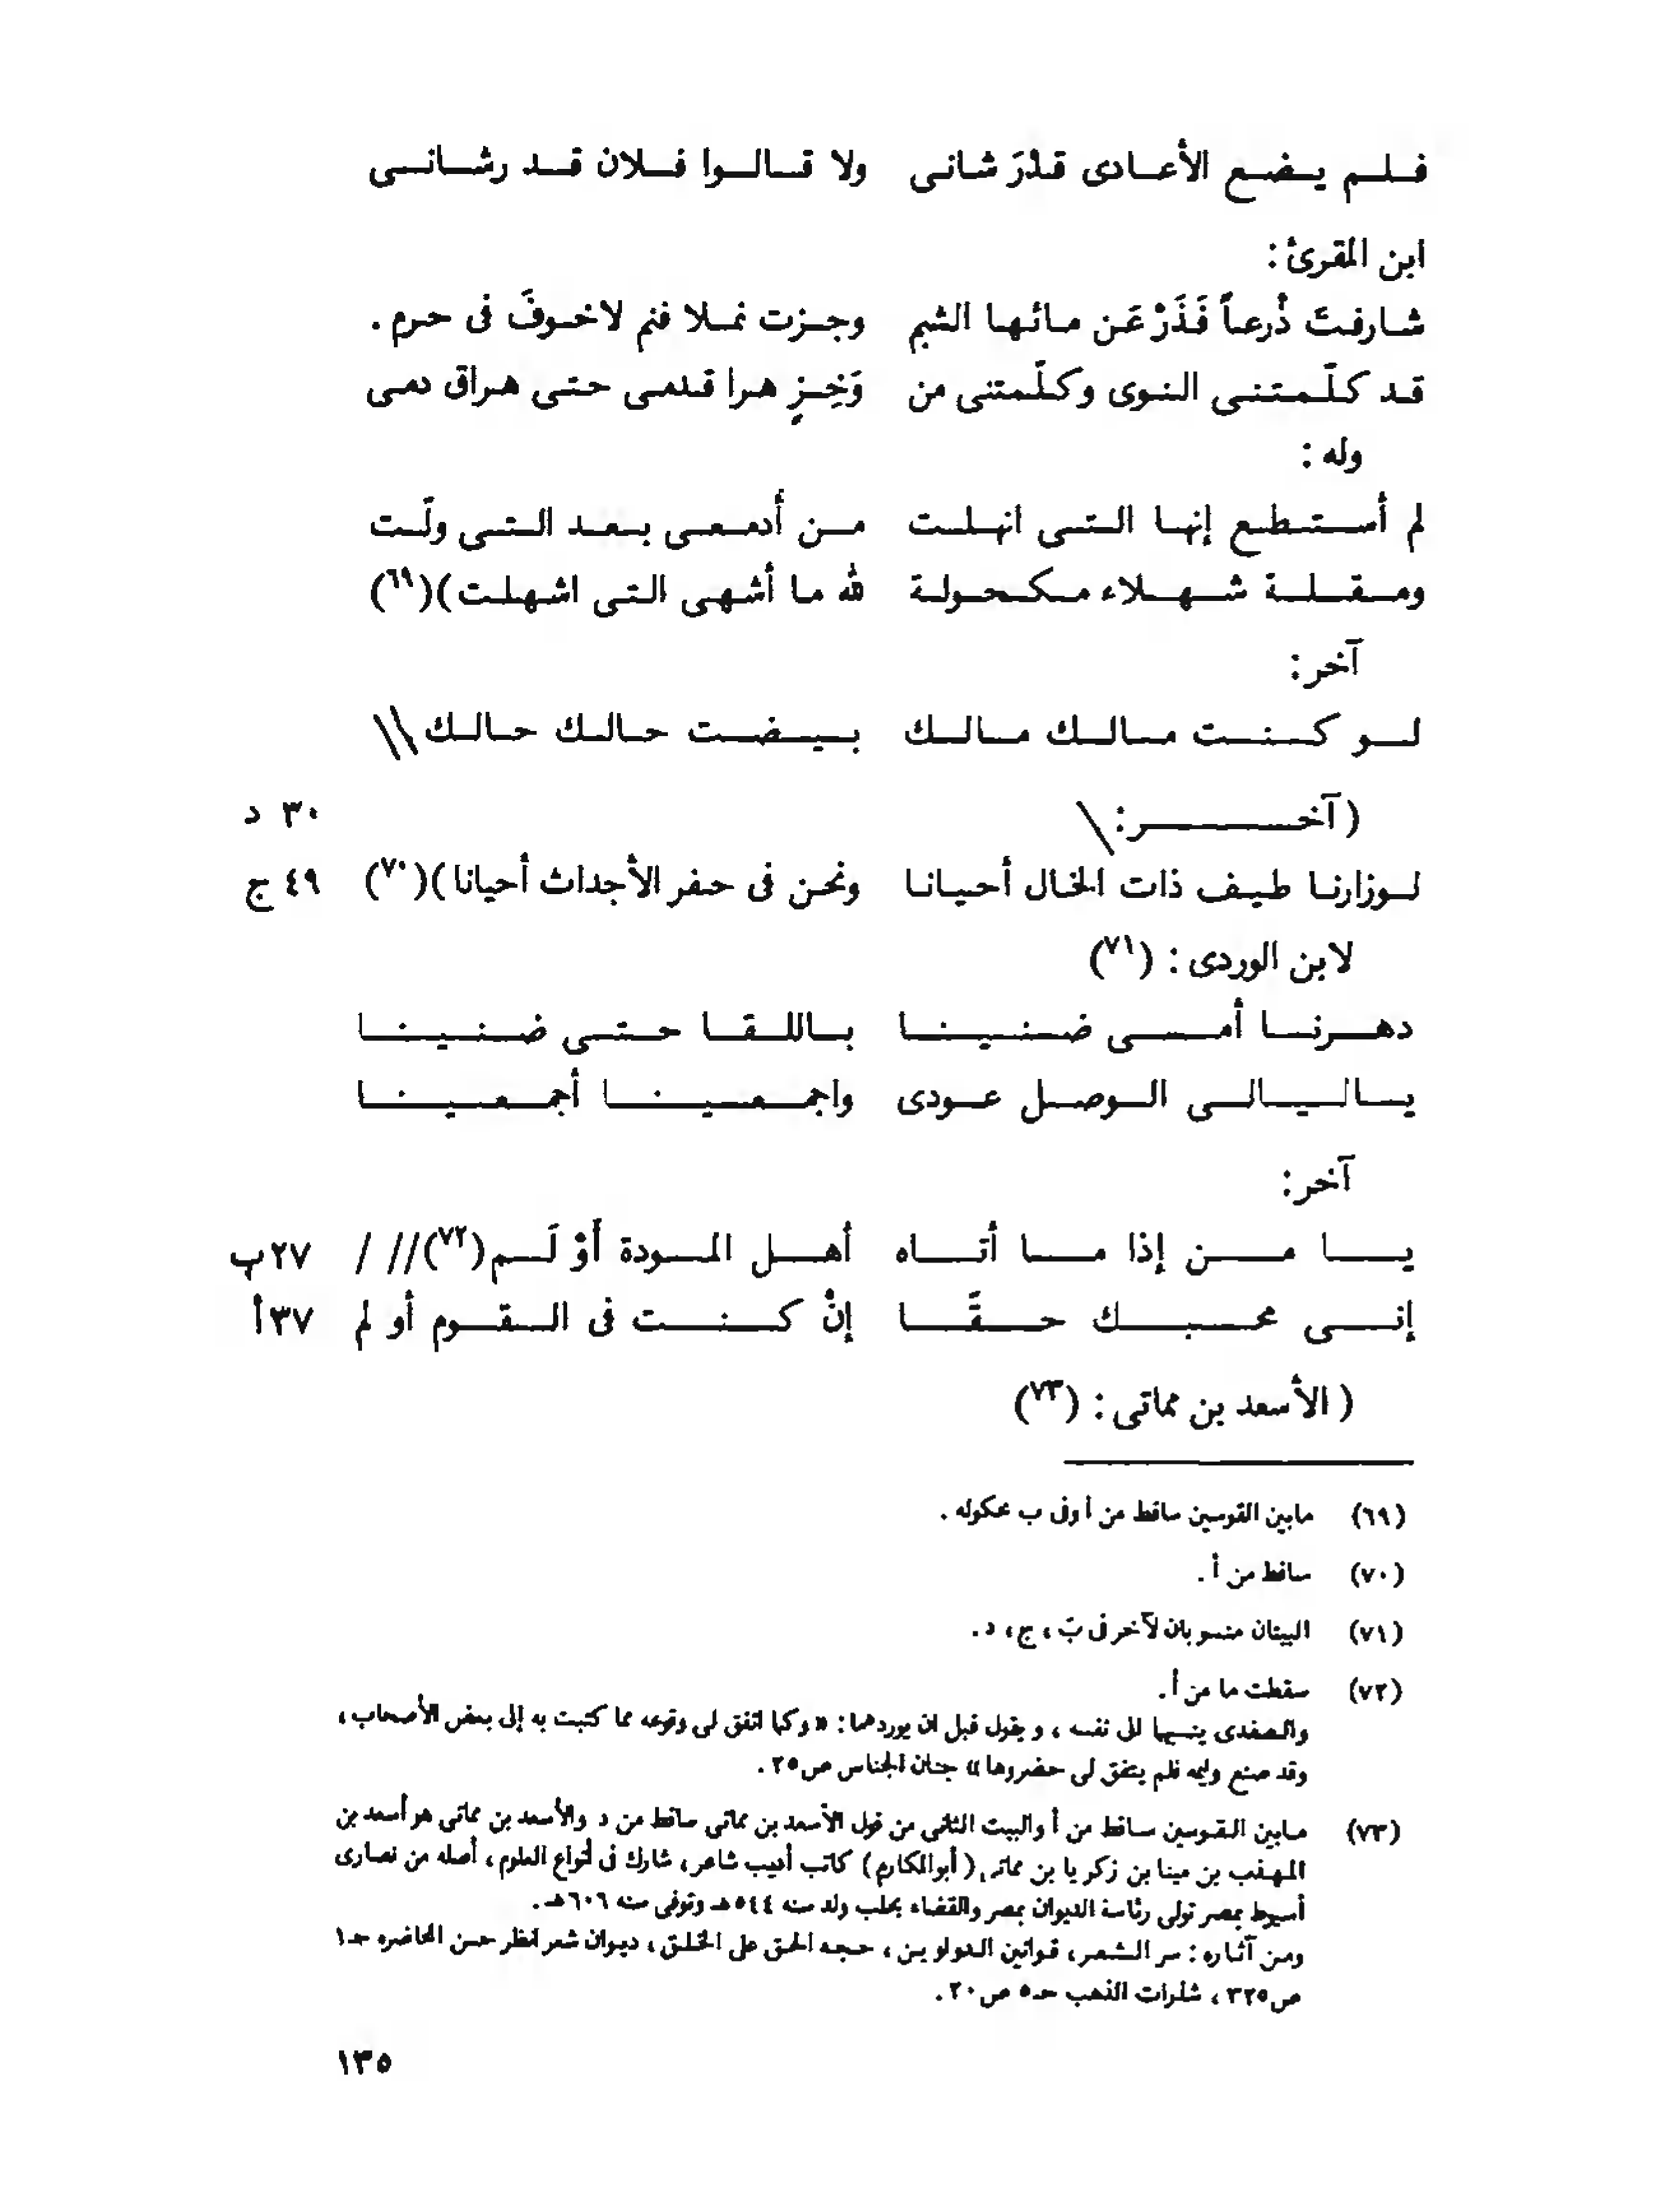 فلم يضع الأعادى قدْرَ شانى ولا قالوا فلان قد رشانى
ابن المقرئ :
شارفتَ ذُرعاً فَذَرْ عَن مائها الشبم وجزت نملا فنم لاخوفَ فى حرم .
قد كلّمتنى النوى وكلّمتنى من وَخِزٍ هرا قدمى حتى هراق دمى
وله :
لم أستطع إنها التى انهلت من أدمعى بعد التى ولّت
ومقلة شهلاء مكحولة لله ما أشهى التى اشهلت )(٦٩)
آخر :
لو كنت مالك مالك بيضت حالك حالك \\
( آخر : \ ٣٠ د
لوزارنا طيف ذات الخال أحيانا ونحن فى حفر الأجداث أحيانا )(٧٠) ٤٩ ج
لابن الوردى : (٧١)
دهرنا أمسى ضنينا باللقا حتى ضنينا
ياليالى الوصل عودى واجمعينا أجمعينا
آخر :
يا من إذا ما أتاه أهل المودة أَوْ لَم (٧٢)// / ٢٧ب
إنى محبك حقًّا إنْ كنت فى القوم أو لم ٣٧أ
( الأسعد بن مماتى : (٧٣)
(٦٩) مابين القوسين ساقط من أ وفى ب محكوله .
(٧٠) ساقط من أ .
(٧١) البيتان منسوبان لآخر فى ب ، ج ، د .
(٧٢) سقطت ما من أ .
والصفدى ينسبها الى نفسه ، ويقول قبل ان يوردهما : « وكما اتفق لى وقوعه مما كتبت به إلى بعض الأصحاب ،
وقد صنع وليمه فلم يتفق لى حضروها » جنان الجناس ص ٢٥ .
(٧٣) مابين القوسين ساقط من أ والبيت الثانى من قول الأسعد بن مماتى ساقط من د والأسعد بن مماتى هو أسعد بن
المهذب بن مينا بن زكريا بن مماتى ( أبوالمكارم ) كاتب أديب شاعر ، شارك فى أنواع العلوم ، أصله من نصارى
أسيوط بمصر تولى رئاسة الديوان بمصر والقضاء بحلب ولد سنه ٥٤٤ هـ وتوفى سنه ٦٠٦ هـ .
ومن آثاره : سر الشعر ، قوانين الدولوين ، حجه الحق على الخلق ، ديوان شعر انظر حسن المحاضره حـ١
ص ٣٢٥ ، شذرات الذهب حـ٥ ص ٢٠ .
١٣٥